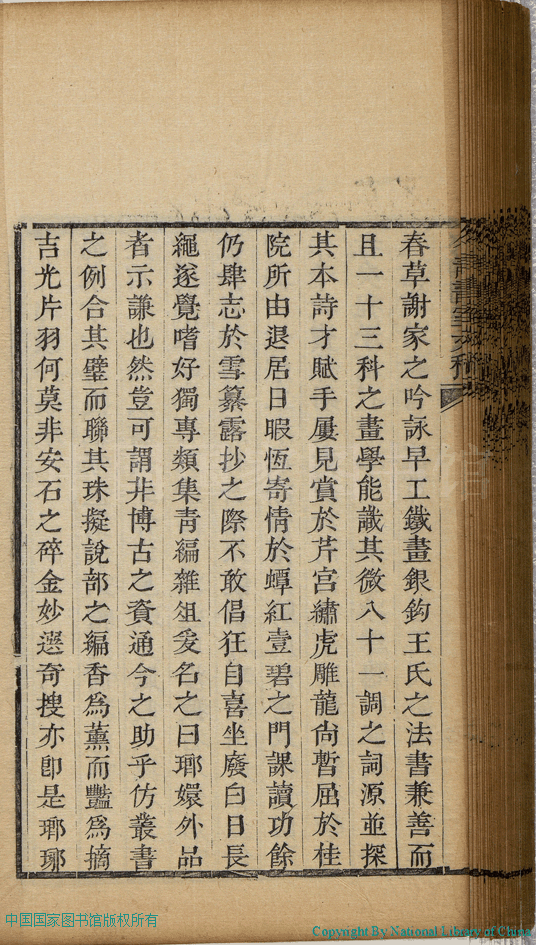 春草謝家之吟詠早工鐵畫銀鈎王氏之法書兼善而
且一十三科之畫學能識其微八十一調之詞源並探
其本詩才賦手屢見賞於芹宮繡虎雕龍尙暫屈於桂
院所由退居日暇恆寄情於蟫紅壹碧之門課讀功餘
仍肆志於雪纂露抄之際不敢倡狂自喜坐廢白日長
繩遂覺嗜好獨專類集青編雜俎爰名之曰瑯嬛外品
者示謙也然豈可謂非博古之資通今之助乎仿叢書
之例合其璧而聯其珠擬說部之編香為薰而豔為摘
吉光片羽何莫非安石之碎金妙選奇搜亦卽是瑯琊
中国国家图书馆版权所有
Copyright By National Library of China